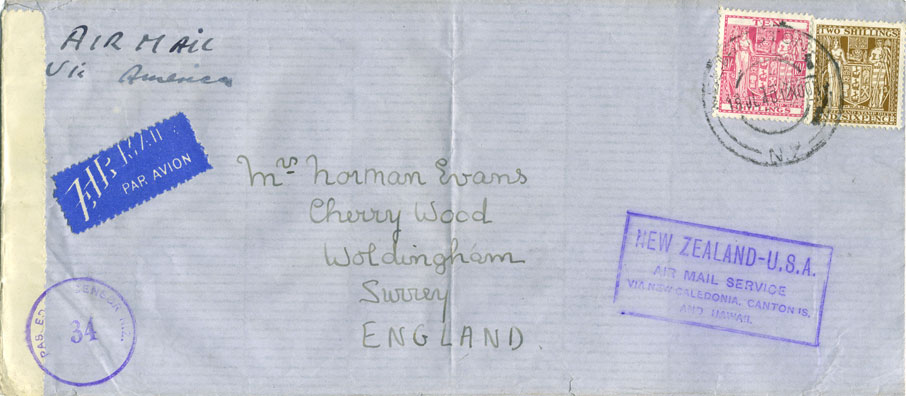 AIR MAIL
Via America
AIR MAIL
PAR AVION
Mrs Norman Evans
Cherry Wood
Woldingham
Surrey
ENGLAND.
TEN
SHILLINGS
TWO SHILLINGS
SIXPENCE
N.Z.
NEW ZEALAND-U.S.A.
AIR MAIL SERVICE
VIA NEW CALEDONIA, CANTON IS.
AND HAWAII.
34